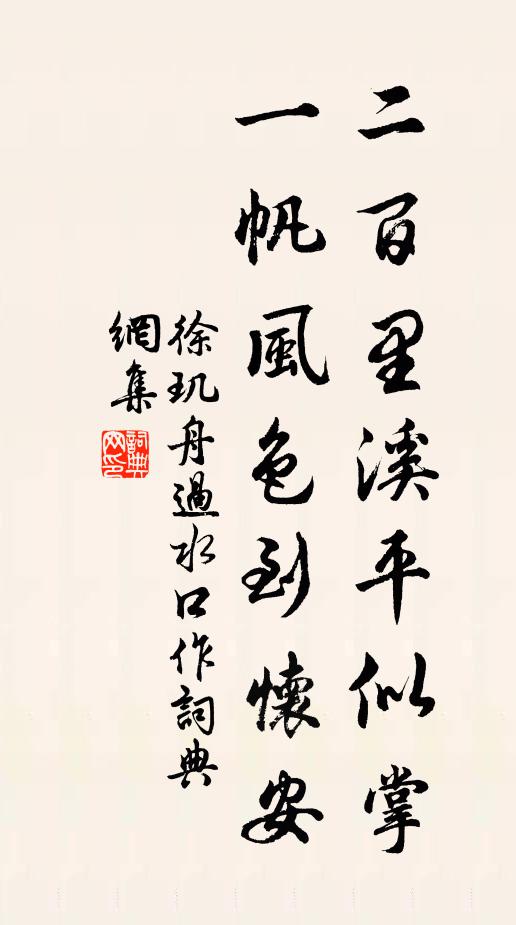 二百里溪平似掌
一帆風色到懷安
徐璣舟過水口作詞典
網集
詞典網印